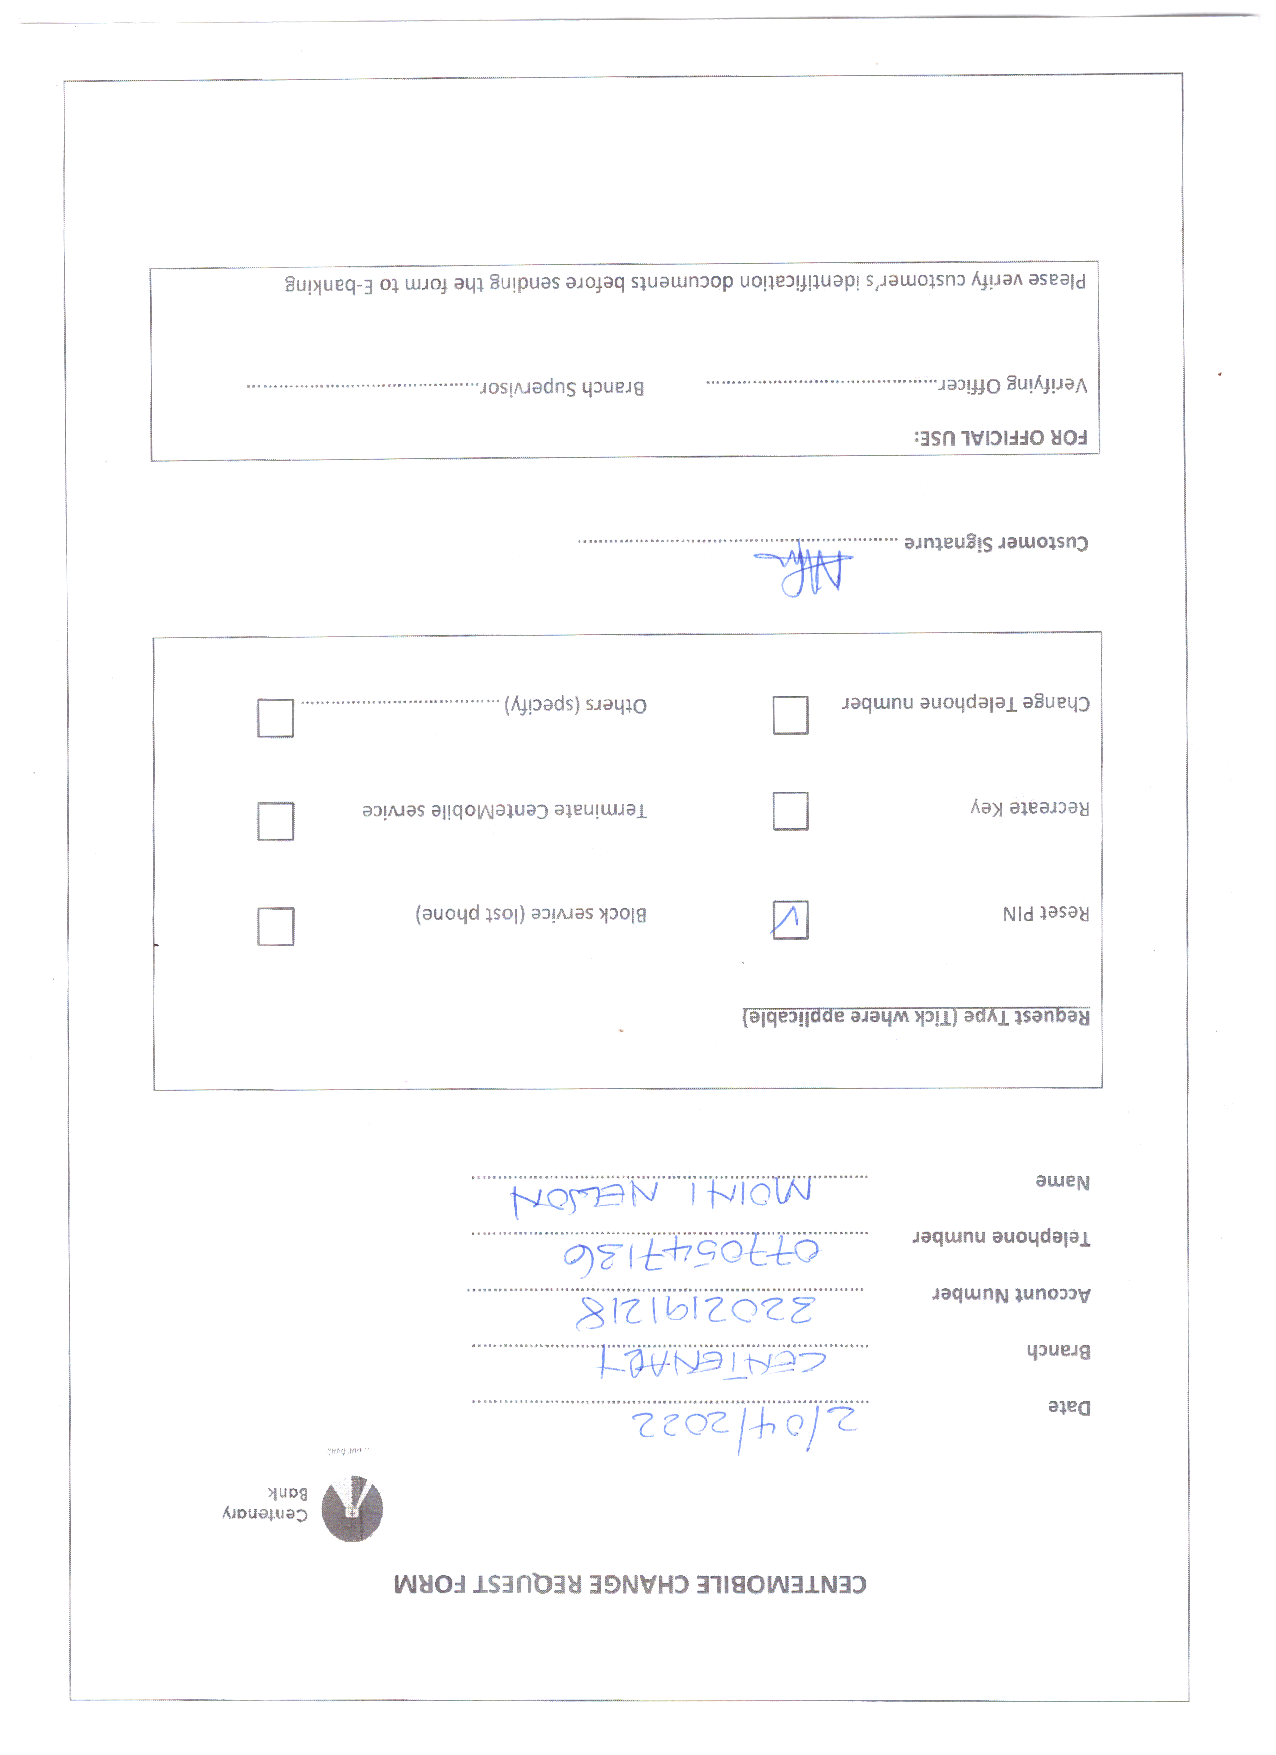 CENTEMOBILE CHANGE REQUEST FORM
Centenary
Bank
Date 2/04/2022
Branch CENTENARY
Account Number 3202191218
Telephone number 0770547136
Name MOINI NELSON
Request Type (Tick where applicable)
Reset PIN Block service (lost phone)
Recreate Key Terminate CenteMobile service
Change Telephone number Others (specify) ....................................
Customer Signature ............................................................
FOR OFFICIAL USE:
Verifying Officer........................................... Branch Supervisor...........................................
Please verify customer's identification documents before sending the form to E-banking